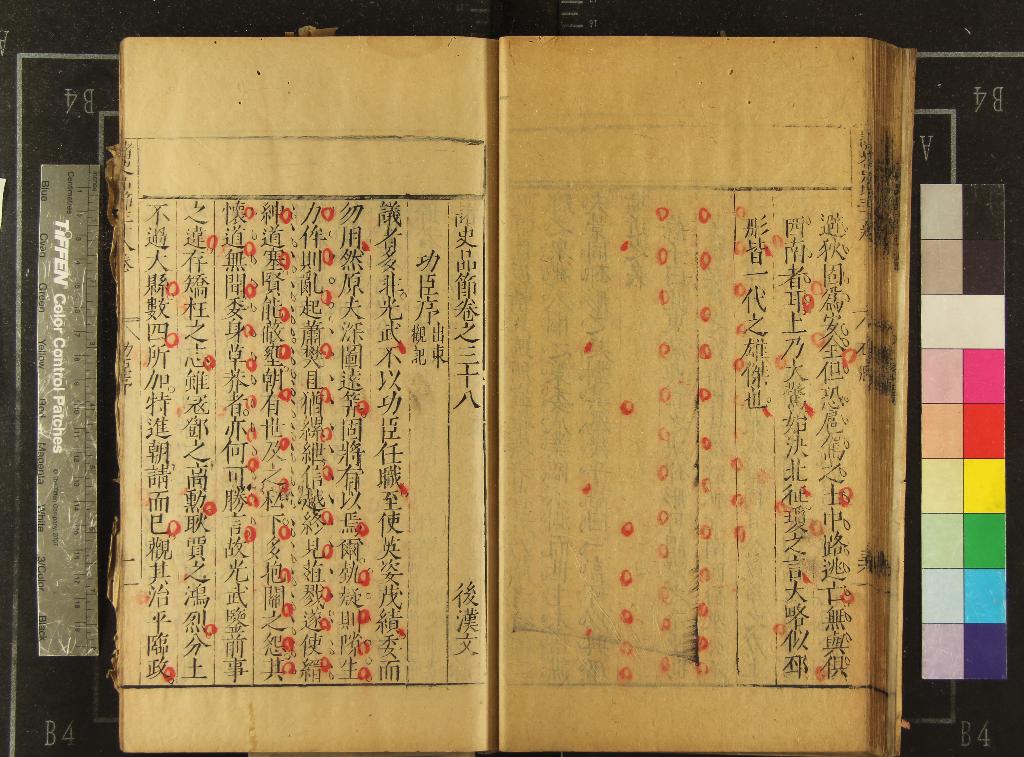 避狄固為安全但恐扈駕之士中路逃亡無與供
西南者耳上乃大驚始決北征瓊之言大略似邳
彤皆一代之雄傑也
諸史品節卷之三十八
後漢文
功臣序 出東觀記
議者多非光武不以功臣任職至使英姿茂績委而
勿用然原夫深圖遠筭固將有以焉爾執疑則隙生
力侔則亂起蕭樊且猶縲紲信越終見葅戮遂使縉
紳道塞賢能蔽壅朝有世及之私下多抱關之怨其
懷道無聞委身草莽者亦何可勝言故光武鑒前事
之違存矯枉之志雖冦鄧之高勳耿賈之鴻烈分土
不過大縣數四所加特進朝請而已觀其治平臨政
TIFFEN Color Control Patches
Blue
Cyan
Green
Yellow
Red
Magenta
White
3/Color
Black
Centimetres
Inches
B4
B4
B4
B4